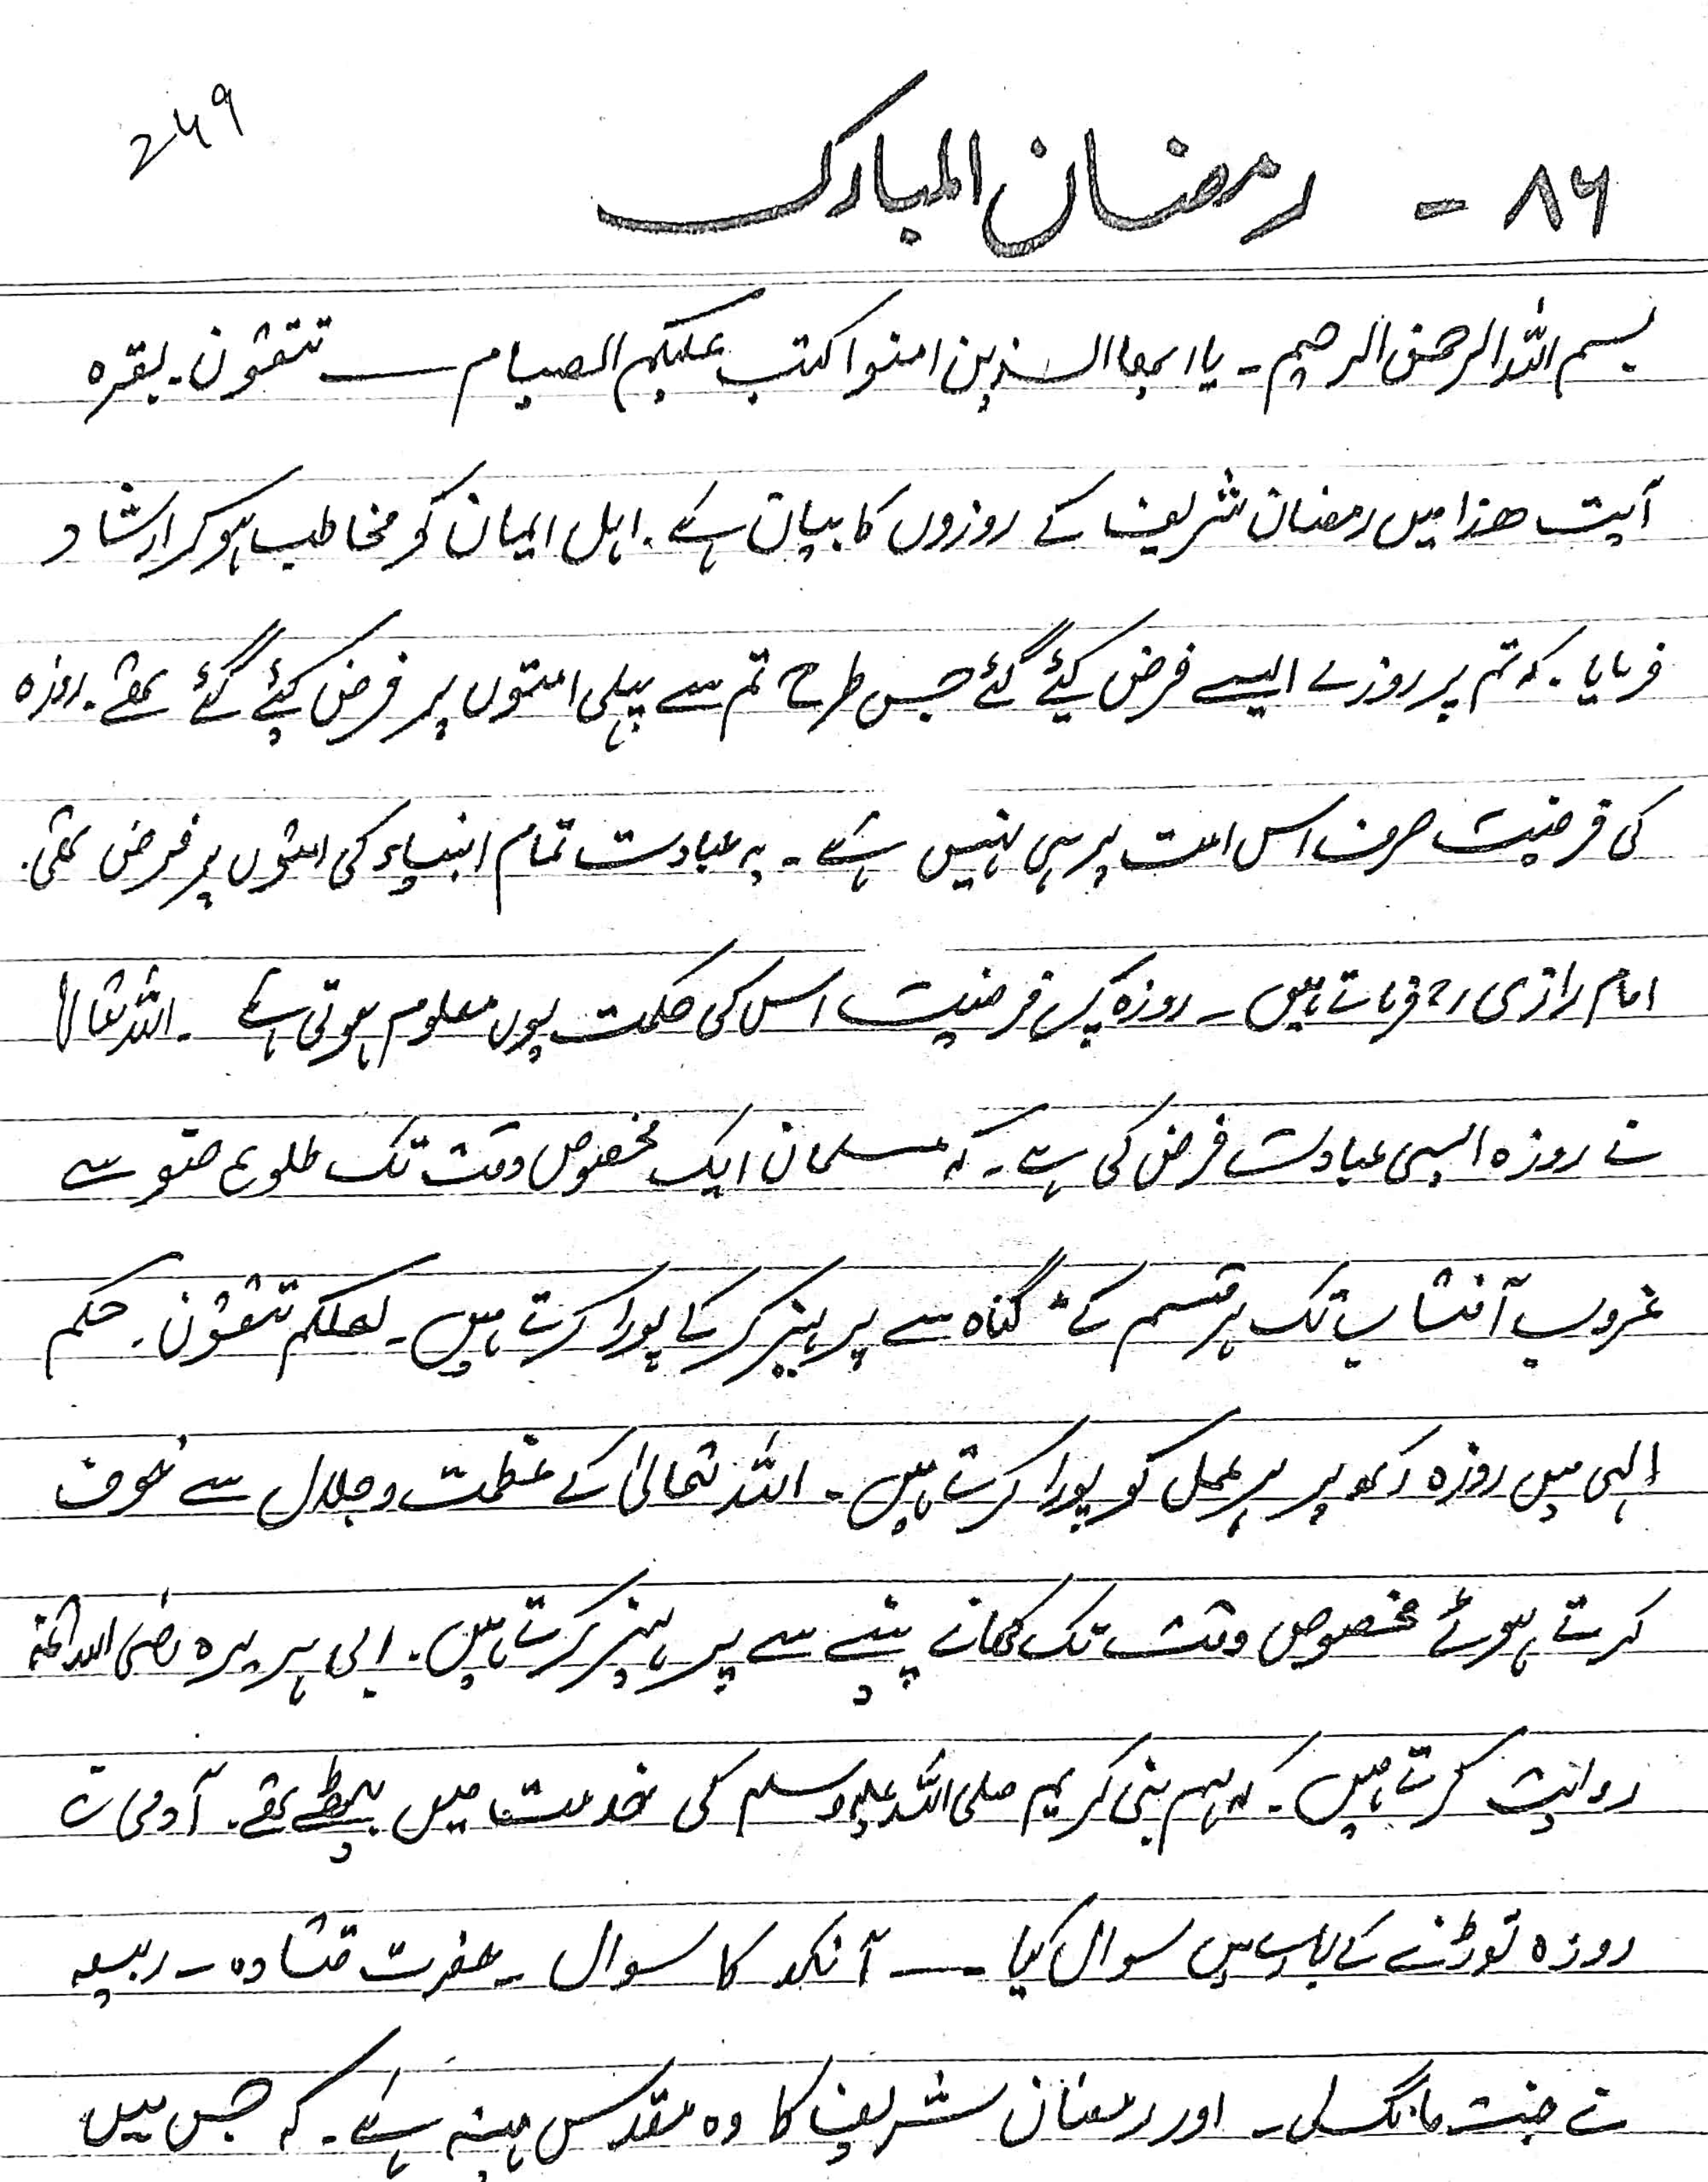 249
۸۶ - رمضان المبارک
بسم اللہ الرحمن الرحیم۔ یا ایھا الذین امنوا کتب علیکم الصیام ــــ تتقون۔ بقرہ
آیت ھذا میں رمضان شریف کے روزوں کا بیان ہے۔ اہل ایمان کو مخاطب ہو کر ارشاد
فرمایا۔ کہ تم پر روزے ایسے فرض کیئے گئے جس طرح تم سے پہلی امتوں پر فرض کیئے گئے تھے۔ روزہ
کی فرضیت صرف اس امت پر ہی نہیں ہے۔ یہ عبادت تمام انبیاء کی امتوں پر فرض تھی۔
امام رازی رح فرماتے ہیں۔ روزہ کی فرضیت اس کی حکمت یوں معلوم ہوتی ہے۔ اللہ تعالیٰ
نے روزہ ایسی عبادت فرض کی ہے۔ کہ مسلمان ایک مخصوص وقت تک طلوع سے
غروب آفتاب تک ہر قسم کے گناہ سے پرہیز کر کے پورا کرتے ہیں۔ لعلکم تتقون۔ حکم
الہی میں روزہ رکھ پر ہر عمل کو پورا کرتے ہیں۔ اللہ تعالیٰ کے عظمت و جلال سے خوف
کرتے ہوئے مخصوص وقت تک کھانے پینے سے پرہیز کرتے ہیں۔ ابی ہریرہ رضی اللہ عنہ
روایت کرتے ہیں۔ کہ ہم نبی کریم صلی اللہ علیہ وسلم کی خدمت میں بیٹھے تھے۔ آدمی نے
روزہ توڑنے کے باب میں سوال کیا ــــ آنکھ کا سوال ۔ حضرت قتادہ ۔ ربیعہ
نے جنت مانگ لی۔ اور رمضان شریف کا وہ مقدس مہینہ ہے۔ کہ جس میں